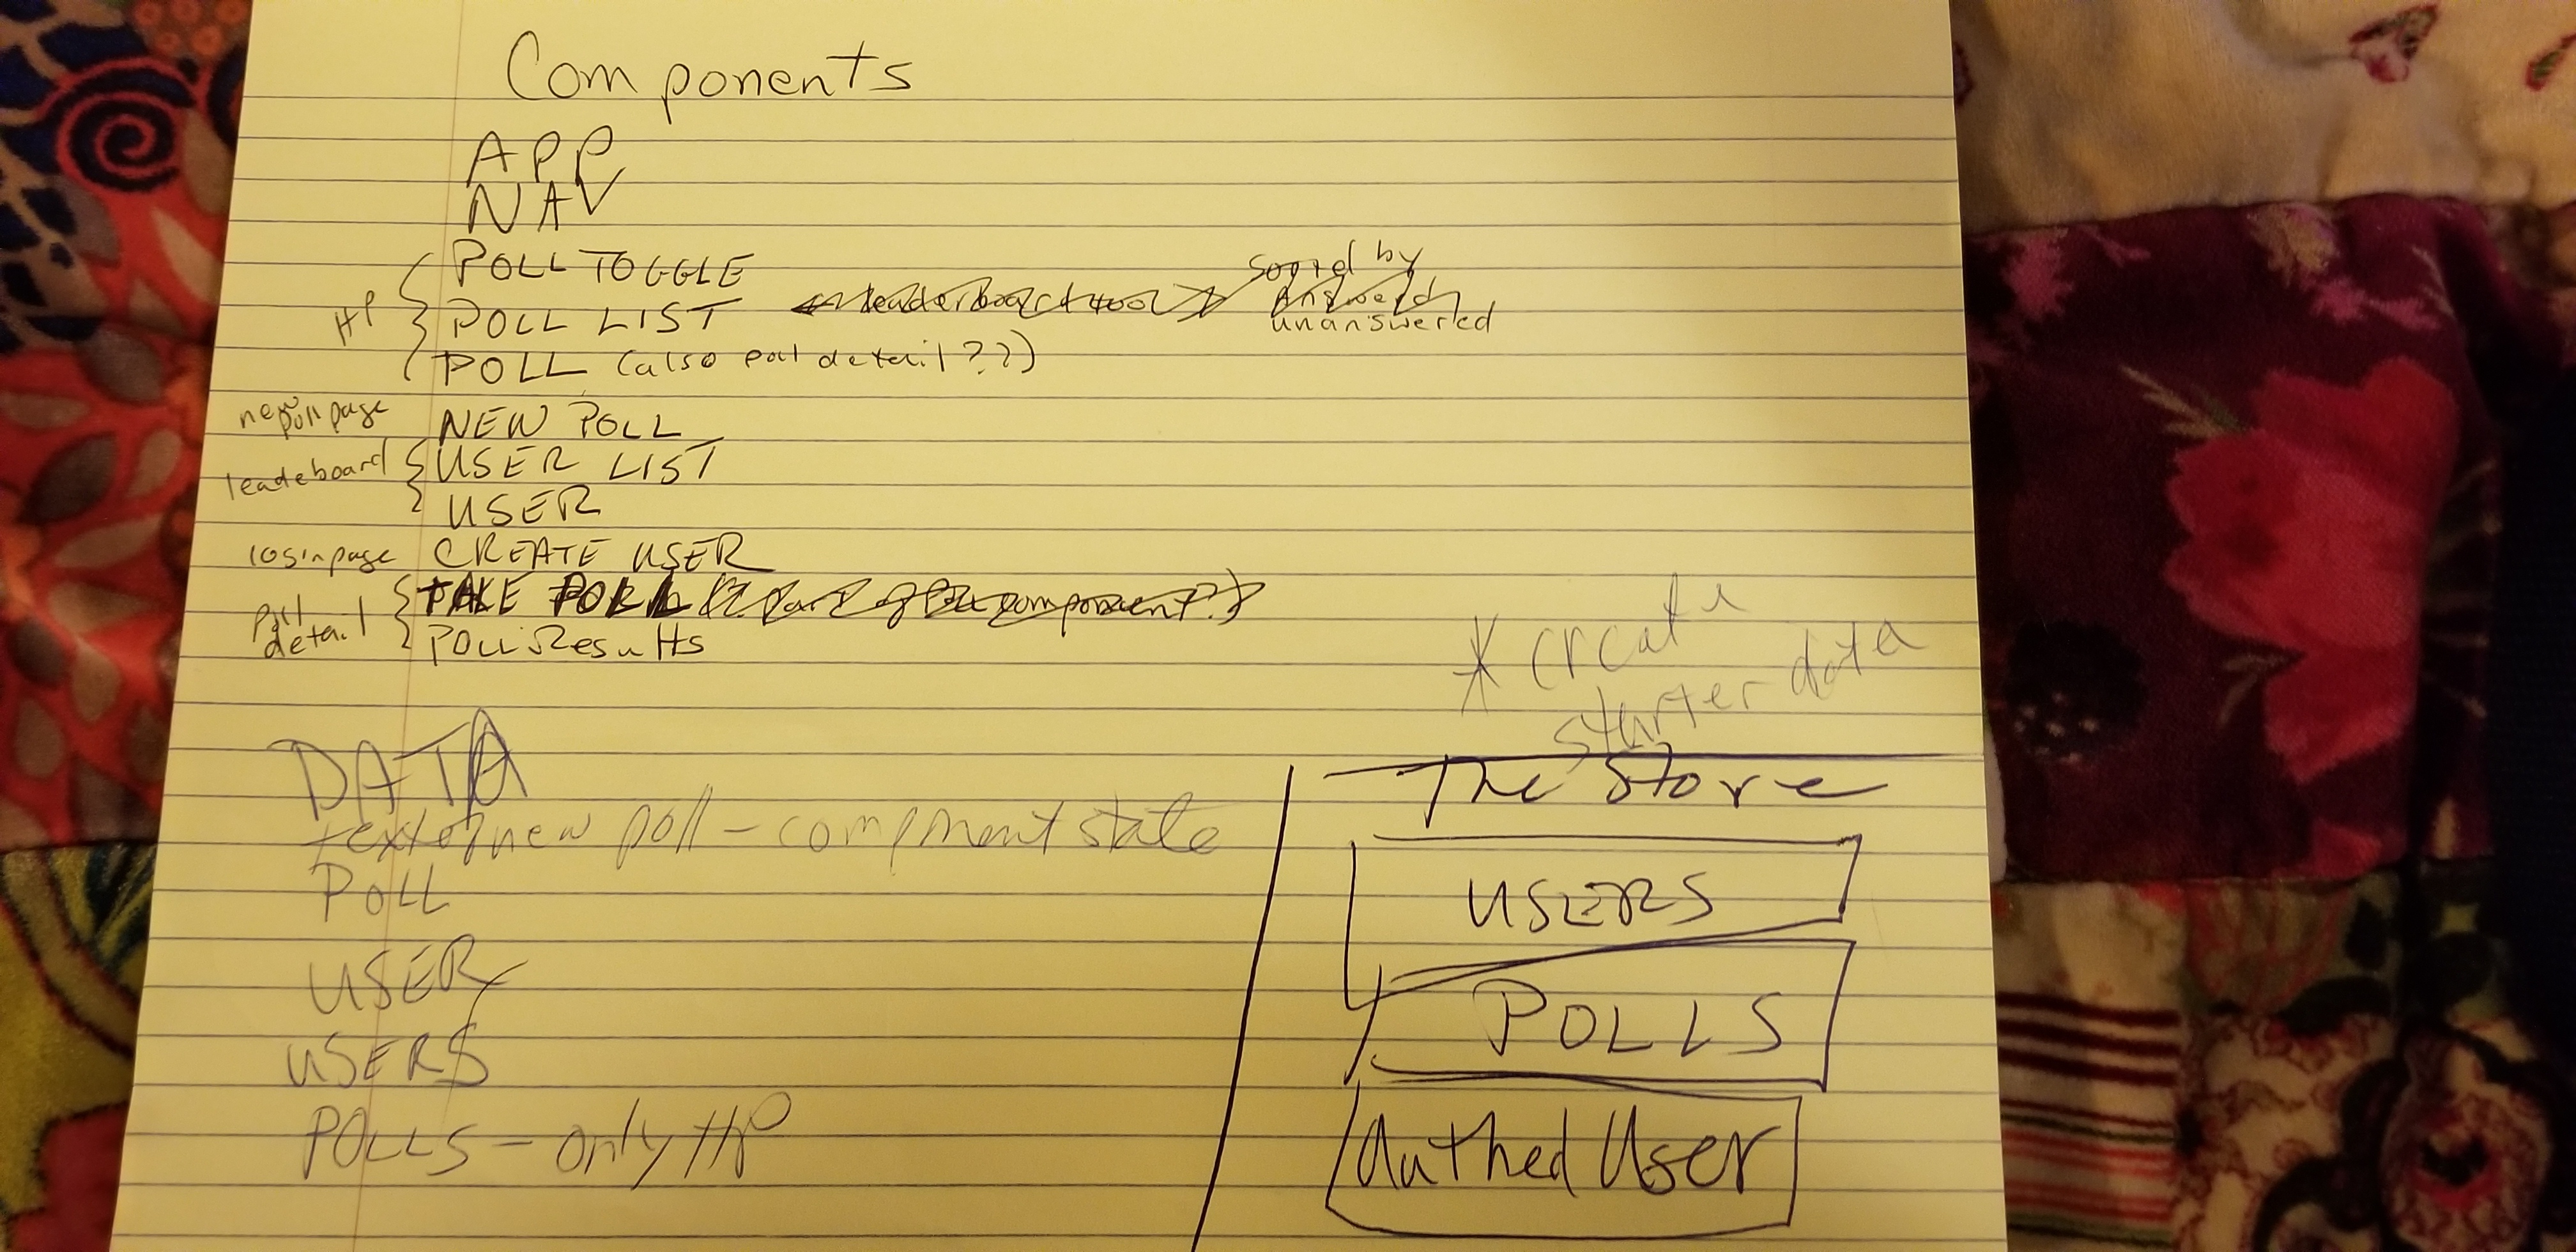 Components
APP
NAV
HP
POLL TOGGLE
POLL LIST <- leaderboard tool -> sorted by
answerd
unanswered
POLL (also poll detail??)
new poll page NEW POLL
leadeboard USER LIST
USER
loginpage CREATE USER
poll detail TAKE POLL (? part of Poll component?)
POLL Results
* create
starter data
DATA
text of new poll - component state
POLL
USER
USERS
POLLS - only HP
The Store
USERS
POLLS
Authed User